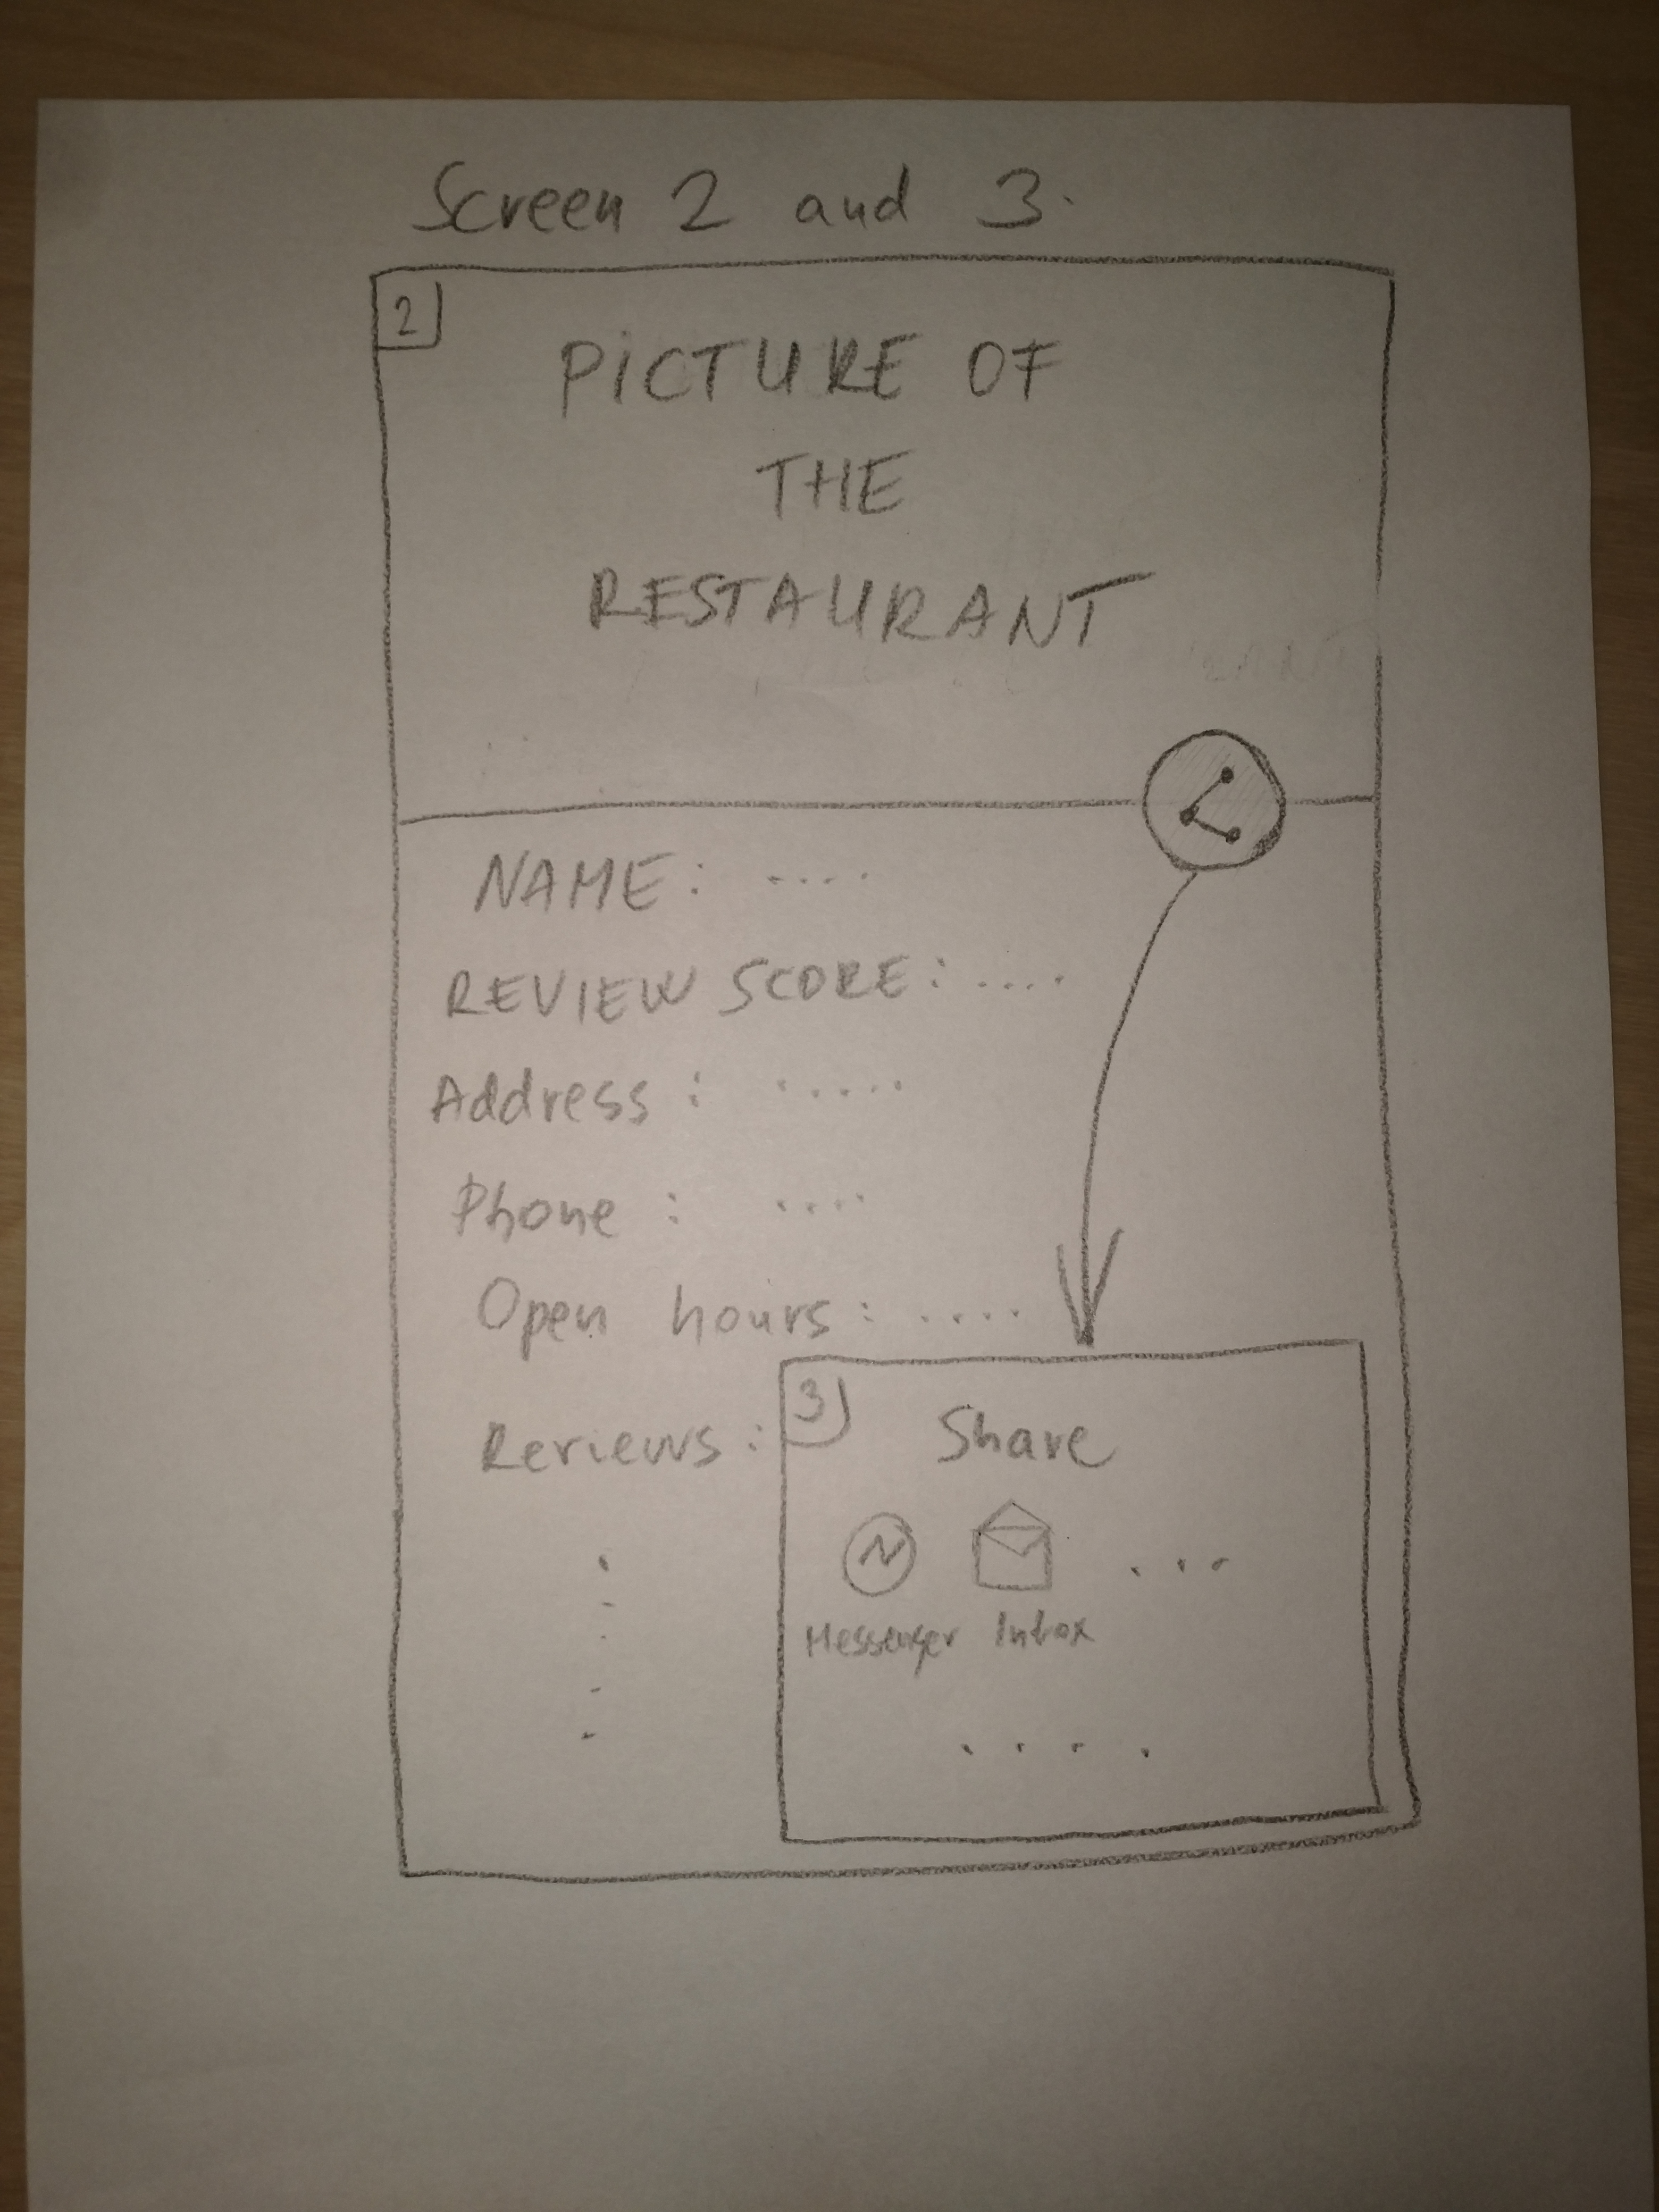 Screen 2 and 3.
2
PiCTURE OF
THE
RESTAURANT
NAME: ....
REVIEW SCORE: ....
Address: .....
Phone: ....
Open hours: ....
Reviews:
3
Share
N
...
Messenger Inbox
....